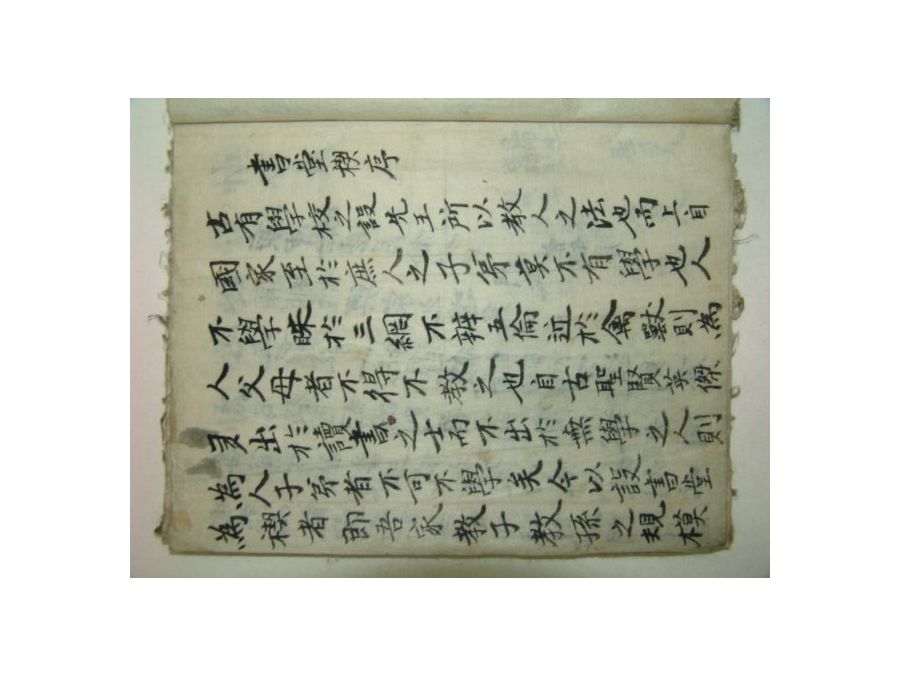 書堂禊序
古有學校之設先王所以教人之法也而上自
國家至於庶人之子弟莫不有學也人
不學昧於三綱不辨五倫近於禽獸則為
人父母者不得不教之也自古聖賢英傑
出於讀書之士而不出於無學之人則
為人子弟者不可不學矣今以設書堂
為禊者即吾家教子教孫之規模